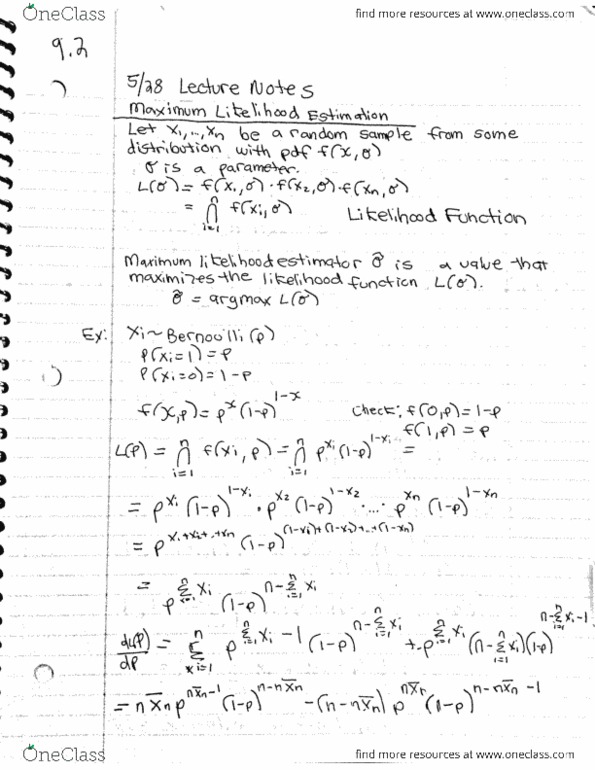 OneClass
find more resources at www.oneclass.com
9.2
5/28 Lecture Notes
Maximum Likelihood Estimation
Let X₁,..,Xn be a random sample from some
distribution with pdf f(x,σ)
σ is a parameter.
L(σ) = f(x₁,σ)·f(x₂,σ)·f(xn,σ)
= ∏ᵢ₌₁ⁿ f(xᵢ,σ) Likelihood Function
Maximum likelihood estimator σ̂ is a value that
maximizes the likelihood function L(σ).
σ̂ = argmax L(σ)
Ex: Xi ~ Bernouilli (p)
P(Xi=1) = P
P(Xi=0) = 1-P
f(x,p) = p^x (1-p)^(1-x) Check: f(0,p) = 1-p
f(1,p) = p
L(p) = ∏ᵢ₌₁ⁿ f(xᵢ, p) = ∏ᵢ₌₁ⁿ p^xᵢ (1-p)^(1-xᵢ) =
= p^xᵢ (1-p)^(1-xᵢ) · p^x₂ (1-p)^(1-x₂) · ... · p^xn (1-p)^(1-xn)
= p^(xᵢ+xᵢ+..+xn) (1-p)^((1-xᵢ)+(1-xᵢ)+..+(1-xn))
= p^(∑ᵢ₌₁ⁿ xᵢ) (1-p)^(n-∑ᵢ₌₁ⁿ xᵢ)
dL(p)/dp = ∑ⁿ xᵢ₌₁ p^(∑ᵢ₌₁ⁿ xᵢ - 1) (1-p)^(n-∑ᵢ₌₁ⁿ xᵢ) + p^(∑ᵢ₌₁ⁿ xᵢ) (n-∑ᵢ₌₁ⁿ xᵢ)(1-p)^(n-∑ᵢ₌₁ⁿ xᵢ-1)
= nX̄n p^(nX̄n-1) (1-p)^(n-nX̄n) - (n-nX̄n) p^(nX̄n) (1-p)^(n-nX̄n-1)
OneClass
find more resources at www.oneclass.com